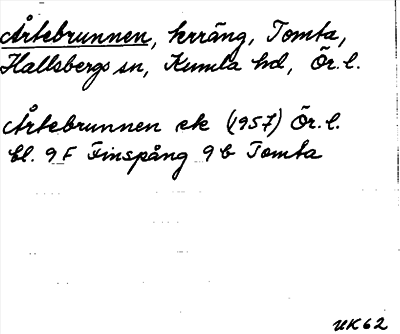 Årtebrunnen, krräng, Tomta,
Hallsbergs sn, Kumla hd, Ör. l.
Årtebrunnen ek (1957) Ör. l.
bl. 9 F Finspång 9 b Tomta
UK62